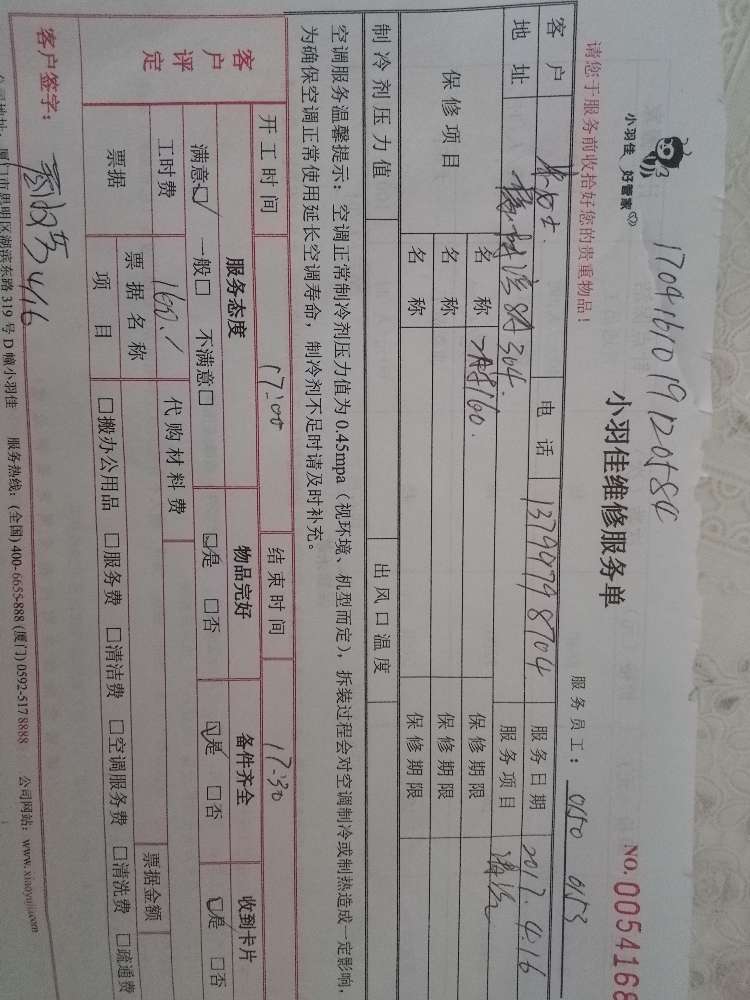 17041610191120584
小羽佳 好管家
小羽佳维修服务单
NO.0054168
请您于服务前收拾好您的贵重物品！
服务员工：0150 0153
客户 电话 13799798704 服务日期 2017.4.16
地址 304. 服务项目 清洗
保修项目 名称 保修期限
名称 保修期限
名称 保修期限
制冷剂压力值 出风口温度
空调服务温馨提示：空调正常制冷剂压力值为0.45mpa（视环境、机型而定），拆装过程会对空调制冷或制热造成一定影响，
为确保空调正常使用延长空调寿命，制冷剂不足时请及时补充。
开工时间 17:00 结束时间 17:30
客户评定
服务态度 物品完好 备件齐全 收到卡片
满意☑ 一般□ 不满意□ ☑是 □否 ☑是 □否 ☑是 □否
工时费 160./ 代购材料费
票据 票据名称 票据金额
项目 □搬办公用品 □服务费 □清洁费 □空调服务费 □清洗费 □疏通费
客户签字： 4/16
公司地址：厦门市思明区湖滨东路319号D幢小羽佳 服务热线：(全国)400-6655-888 (厦门)0592-517 8888 公司网站：www.xiaoyujia.com